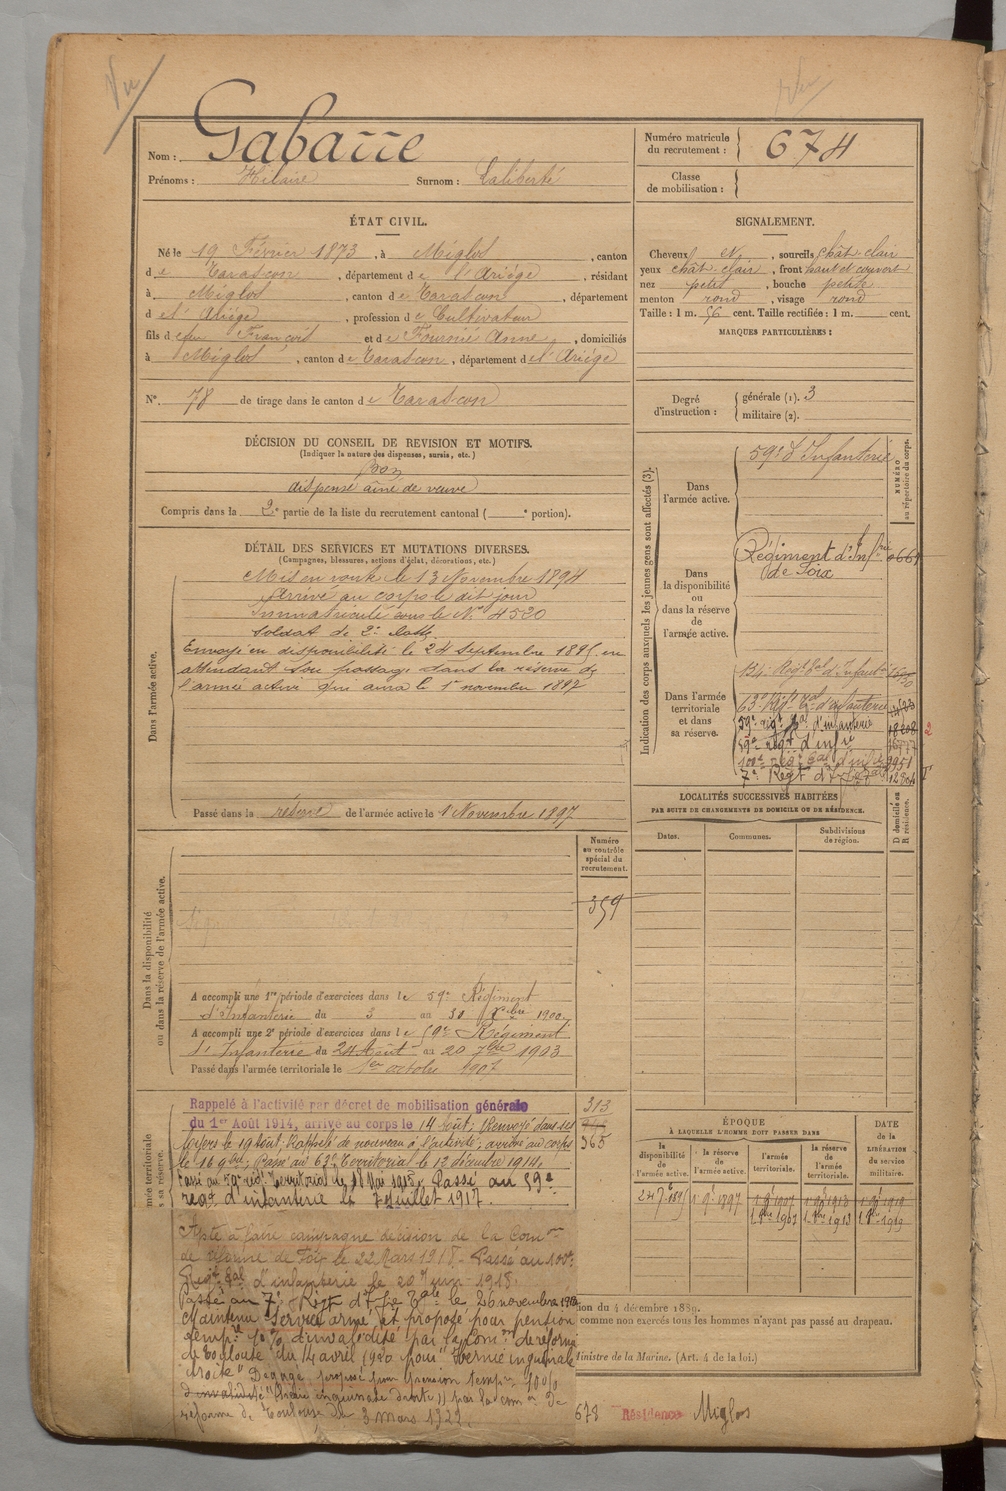 Vu
Vu
Nom : Gabarre
Prénoms : Hilaire Surnom : Laliberté
Numéro matricule du recrutement : 674
Classe de mobilisation :
ÉTAT CIVIL.
Né le 19 Février 1873, à Miglos, canton
de Tarascon, département de l'Ariége, résidant
à Miglos, canton de Tarascon, département
de l'Ariége, profession de Cultivateur
fils de feu François et de Fournié Anne, domiciliés
à Miglos, canton de Tarascon, département de l'Ariége
N° 78 de tirage dans le canton de Tarascon
DÉCISION DU CONSEIL DE REVISION ET MOTIFS.
(Indiquer la nature des dispenses, sursis, etc.)
Bon
dispensé aîné de veuve
Compris dans la 2e partie de la liste du recrutement cantonal ( e portion).
SIGNALEMENT.
Cheveux et, sourcils chât clair
yeux chât. clair, front haut et couvert
nez petit, bouche petite
menton rond, visage rond
Taille : 1 m. 56 cent. Taille rectifiée : 1 m. cent.
MARQUES PARTICULIÈRES :
Degré d'instruction : générale (1). 3
militaire (2).
DÉTAIL DES SERVICES ET MUTATIONS DIVERSES.
(Campagnes, blessures, actions d'éclat, décorations, etc.)
Dans l'armée active.
Mis en route le 13 Novembre 1894
Arrivé au corps le dit jour
Immatriculé sous le N° 4520
Soldat de 2e classe
Envoyé en disponibilité le 24 Septembre 1895 en
attendant son passage dans la réserve de
l'armée active qui aura le 1er novembre 1897
Passé dans la réserve de l'armée active le 1 Novembre 1897
Indication des corps auxquels les jeunes gens sont affectés (3).
NUMÉRO au répertoire du corps.
Dans l'armée active.
59e d'Infanterie
Dans la disponibilité ou dans la réserve de l'armée active.
Régiment d'Infrie
de Foix
Dans l'armée territoriale et dans sa réserve.
134e Régt tal d'Infanterie
63e Régt Tal d'infanterie
59e régt tal d'infanterie
59e régt d'infie
100e régt tal d'infie 3951
7e Régt d'Infie tale 12804
LOCALITÉS SUCCESSIVES HABITÉES
PAR SUITE DE CHANGEMENTS DE DOMICILE OU DE RÉSIDENCE.
Dates. Communes. Subdivisions de région. D domicile ou R résidence.
Dans la disponibilité ou dans la réserve de l'armée active.
Numéro au contrôle spécial du recrutement.
359
A accompli une 1re période d'exercices dans le 59e Régiment
d'Infanterie du 3 au 30 Xbre 1900
A accompli une 2e période d'exercices dans le 59e Régiment
d'Infanterie du 24 Août au 20 7bre 1903
Passé dans l'armée territoriale le 1er octobre 1907
Rappelé à l'activité par décret de mobilisation générale
du 1er Août 1914, arrivé au corps le 14 Août; Renvoyé dans ses
foyers le 19 Août. Rappelé de nouveau à l'activité; arrivé au corps
le 16 9bre; Passé au 63e Territorial le 12 décembre 1914.
Passé au 59e régt Territorial le 18 Mai 1915. Passé au 59e
régt d'infanterie le 7 Juillet 1917.
313
365
Apte à faire campagne décision de la Comon
de réforme de Foix le 22 Mars 1918. Passé au 100e
Régt tal d'infanterie le 20 juin 1918.
Passé au 7e Régt d'Ie Tale le 26 novembre 1918
Maintenu Service armé et proposé pour pension
tempre 10% d'invalidité par la Comon de réforme
de Toulouse du 14 avril 1920 pour "Hernie inguinale
droite" Dégagé, proposé pour pension tempre 10%
d'invalidité "(hernie inguinale droite)" par la comon de
réforme de Toulouse du 3 mars 1922.
ÉPOQUE
À LAQUELLE L'HOMME DOIT PASSER DANS
DATE DE LA LIBÉRATION du service militaire.
la disponibilité de l'armée active. la réserve de l'armée active. l'armée territoriale. la réserve de l'armée territoriale.
24 7e 1895 1 9e 1897 1 9e 1907 1 9e 1913 1 9e 1919
ion du 4 décembre 1889.
comme non exercés tous les hommes n'ayant pas passé au drapeau.
Ministre de la Marine. (Art. 4 de la loi.)
678 Résidence Miglos